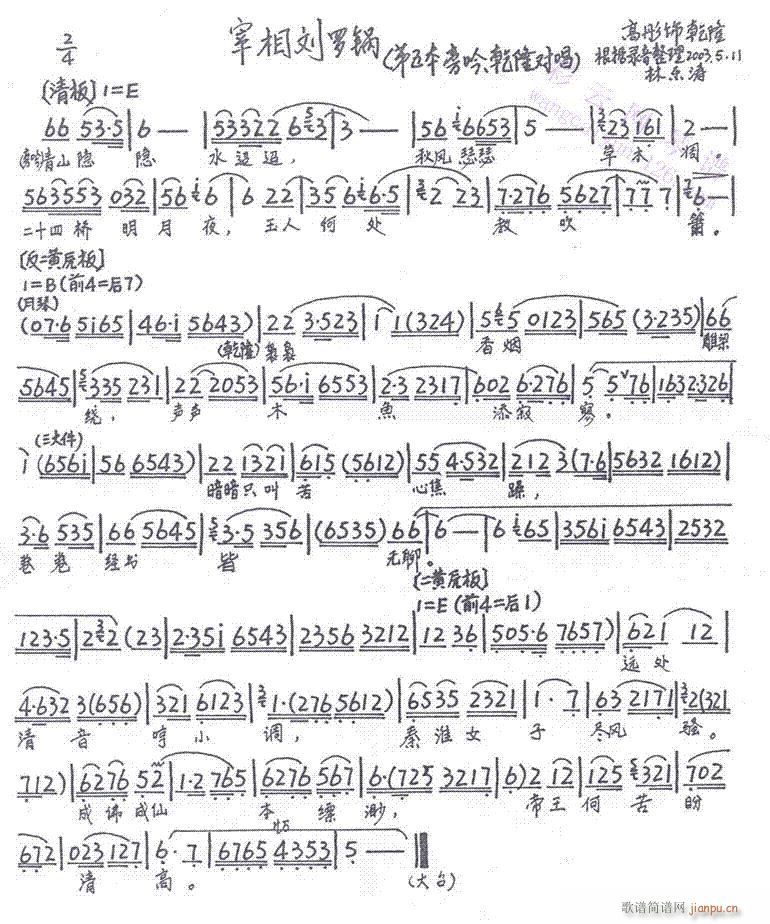 宰相刘罗锅 (第五本旁吟、乾隆对唱)
高彤饰乾隆
根据录音整理2003.5.11
林东涛
2/4
[清板] 1=E
66 53·5 | 6 — | 53322 6 3 | 3 — | 56 6653 | 5 — | 23 161 | 2 — |
青山隐 隐 水迢迢， 秋风瑟瑟 草木 凋。
563553 032 | 56 6 | 6 22 | 35 6 6·5 | 2 23 | 7·276 5627 | 77 7 | 6 — |
二十四桥 明月夜， 玉人何处 教 吹 箫。
[反二黄原板]
1=B (前4=后7)
(月琴)
(07·6 5i65 | 46·i 5643) | 22 3·523 | i 1(324) | 5 5 0123 | 565 (3·235) | 66
(乾隆) 袅袅 香烟 雕梁
5645 | 335 231 | 22 2053 | 56·i 6553 | 2·3 2317 | 602 6·276 | 5 5 76 | 163 2·326 |
绕， 声声 木 鱼 添寂 寥。
(三大件)
i (656i | 56 6543) | 22 1321 | 615 (5612) | 55 4·532 | 212 3(7·6 | 5632 1612) |
暗暗只叫 苦 心焦 躁，
3·6 535 | 66 5645 | 3·5 356 | (6535) 66 | 6 — | 6 65 | 356i 6543 | 2532
卷卷 经书 皆 无聊。
[二黄原板]
1=E (前4=后1)
123·5 | 2 2 (23 | 2·35i 6543 | 2356 3212 | 12 36 | 505·6 7657) | 621 12 |
远处
4·632 3(656) | 321 6123 | 1·(276 5612) | 6535 2321 | 1·7 | 63 2171 | 2 (321
清音 哼小 调， 秦淮女 子 尽风 骚。
712) | 6276 52 | 1·2 765 | 6276 567 | 6·(725 3217 | 6) 2 12 | 125 321 | 702
成佛成仙 本缥渺， 帝王何苦 盼
672 | 023 127 | 6·7 | 6765 4353 | 5 — ‖
清 高。 (大台)
歌谱简谱网
jianpu.cn